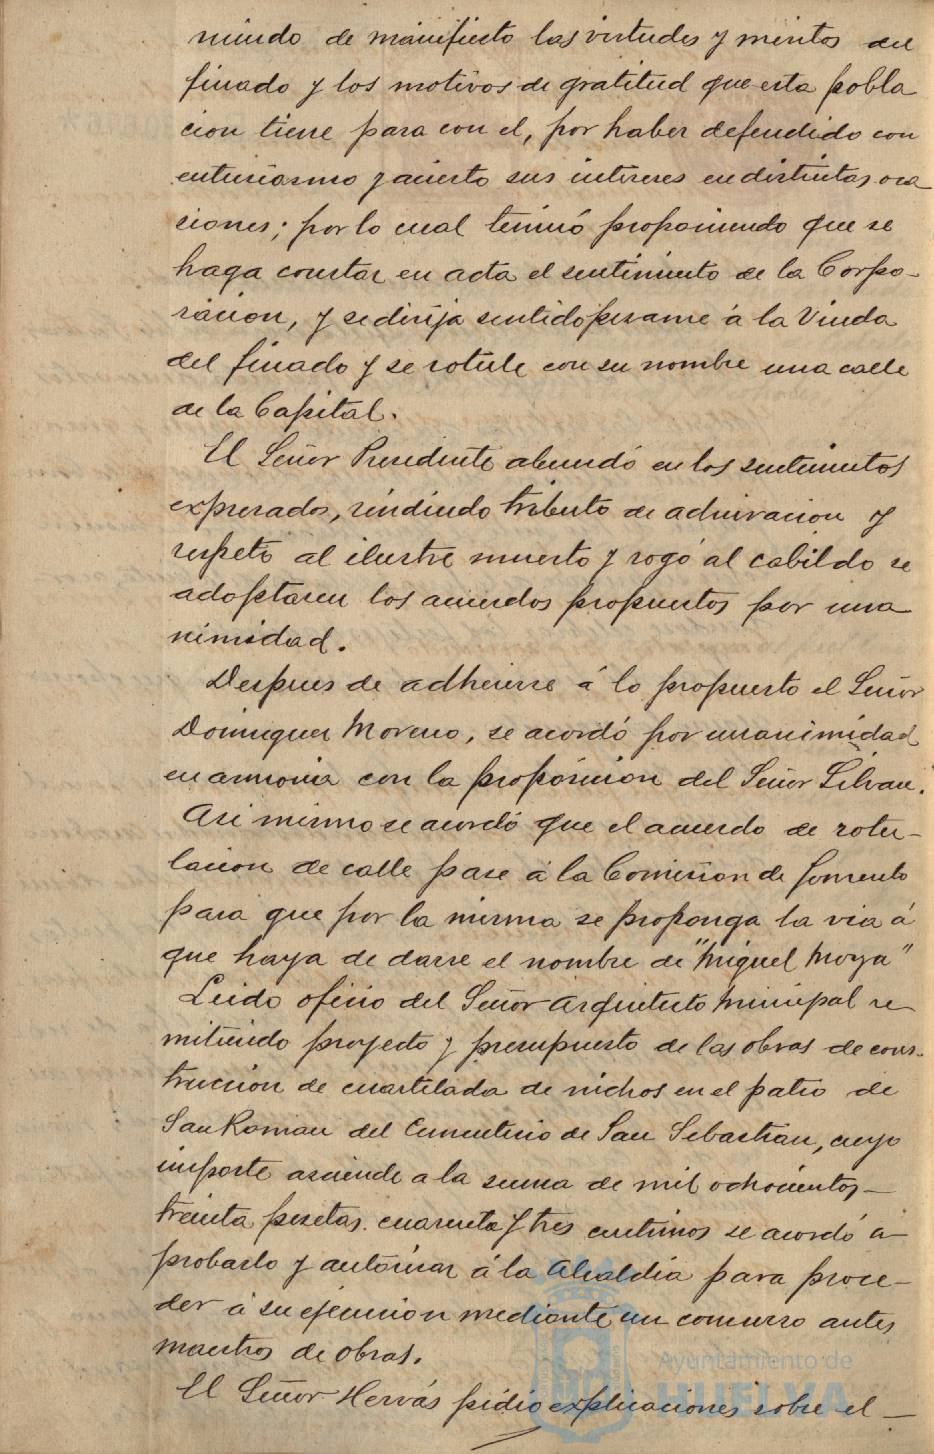 niendo de manifiesto las virtudes y meritos del
finado y los motivos de gratitud que esta pobla
cion tiene para con el, por haber defendido con
entusiasmo y acierto sus intereses en distintas oca
siones; por lo cual terminó proponiendo que se
haga constar en acta el sentimiento de la Corpo-
racion, y se dirija sentido pesame á la Viuda
del finado y se rotule con su nombre una calle
de la Capital.
El Señor Presidente abundó en los sentimientos
expresados, rindiendo tributo de admiracion y
respeto al ilustre muerto y rogó al cabildo se
adoptaren los acuerdos propuestos por una
nimidad.
Despues de adherirse á lo propuesto el Señor
Dominguez Moreno, se acordó por unanimidad
en armonia con la proposicion del Señor Silvan.
Asi mismo se acordó que el acuerdo de rotu-
lacion de calle pase á la Comision de fomento
para que por la misma se proponga la via á
que haya de darse el nombre de "Miguel Moya"
Leido oficio del Señor Arquitecto Municipal re
mitiendo proyecto y presupuesto de las obras de cons-
truccion de cuartelada de nichos en el patio de
San Roman del Cementerio de San Sebastian, cuyo
importe asciende a la suma de mil ochocientos-
treinta pesetas cuarenta y tres centimos se acordó a-
probarlo y autorizar á la Alcaldia para proce-
der á su ejecucion mediante un concurso antes
maestros de obras.
El Señor Hervás pidió explicaciones sobre el-
Ayuntamiento de
HUELVA